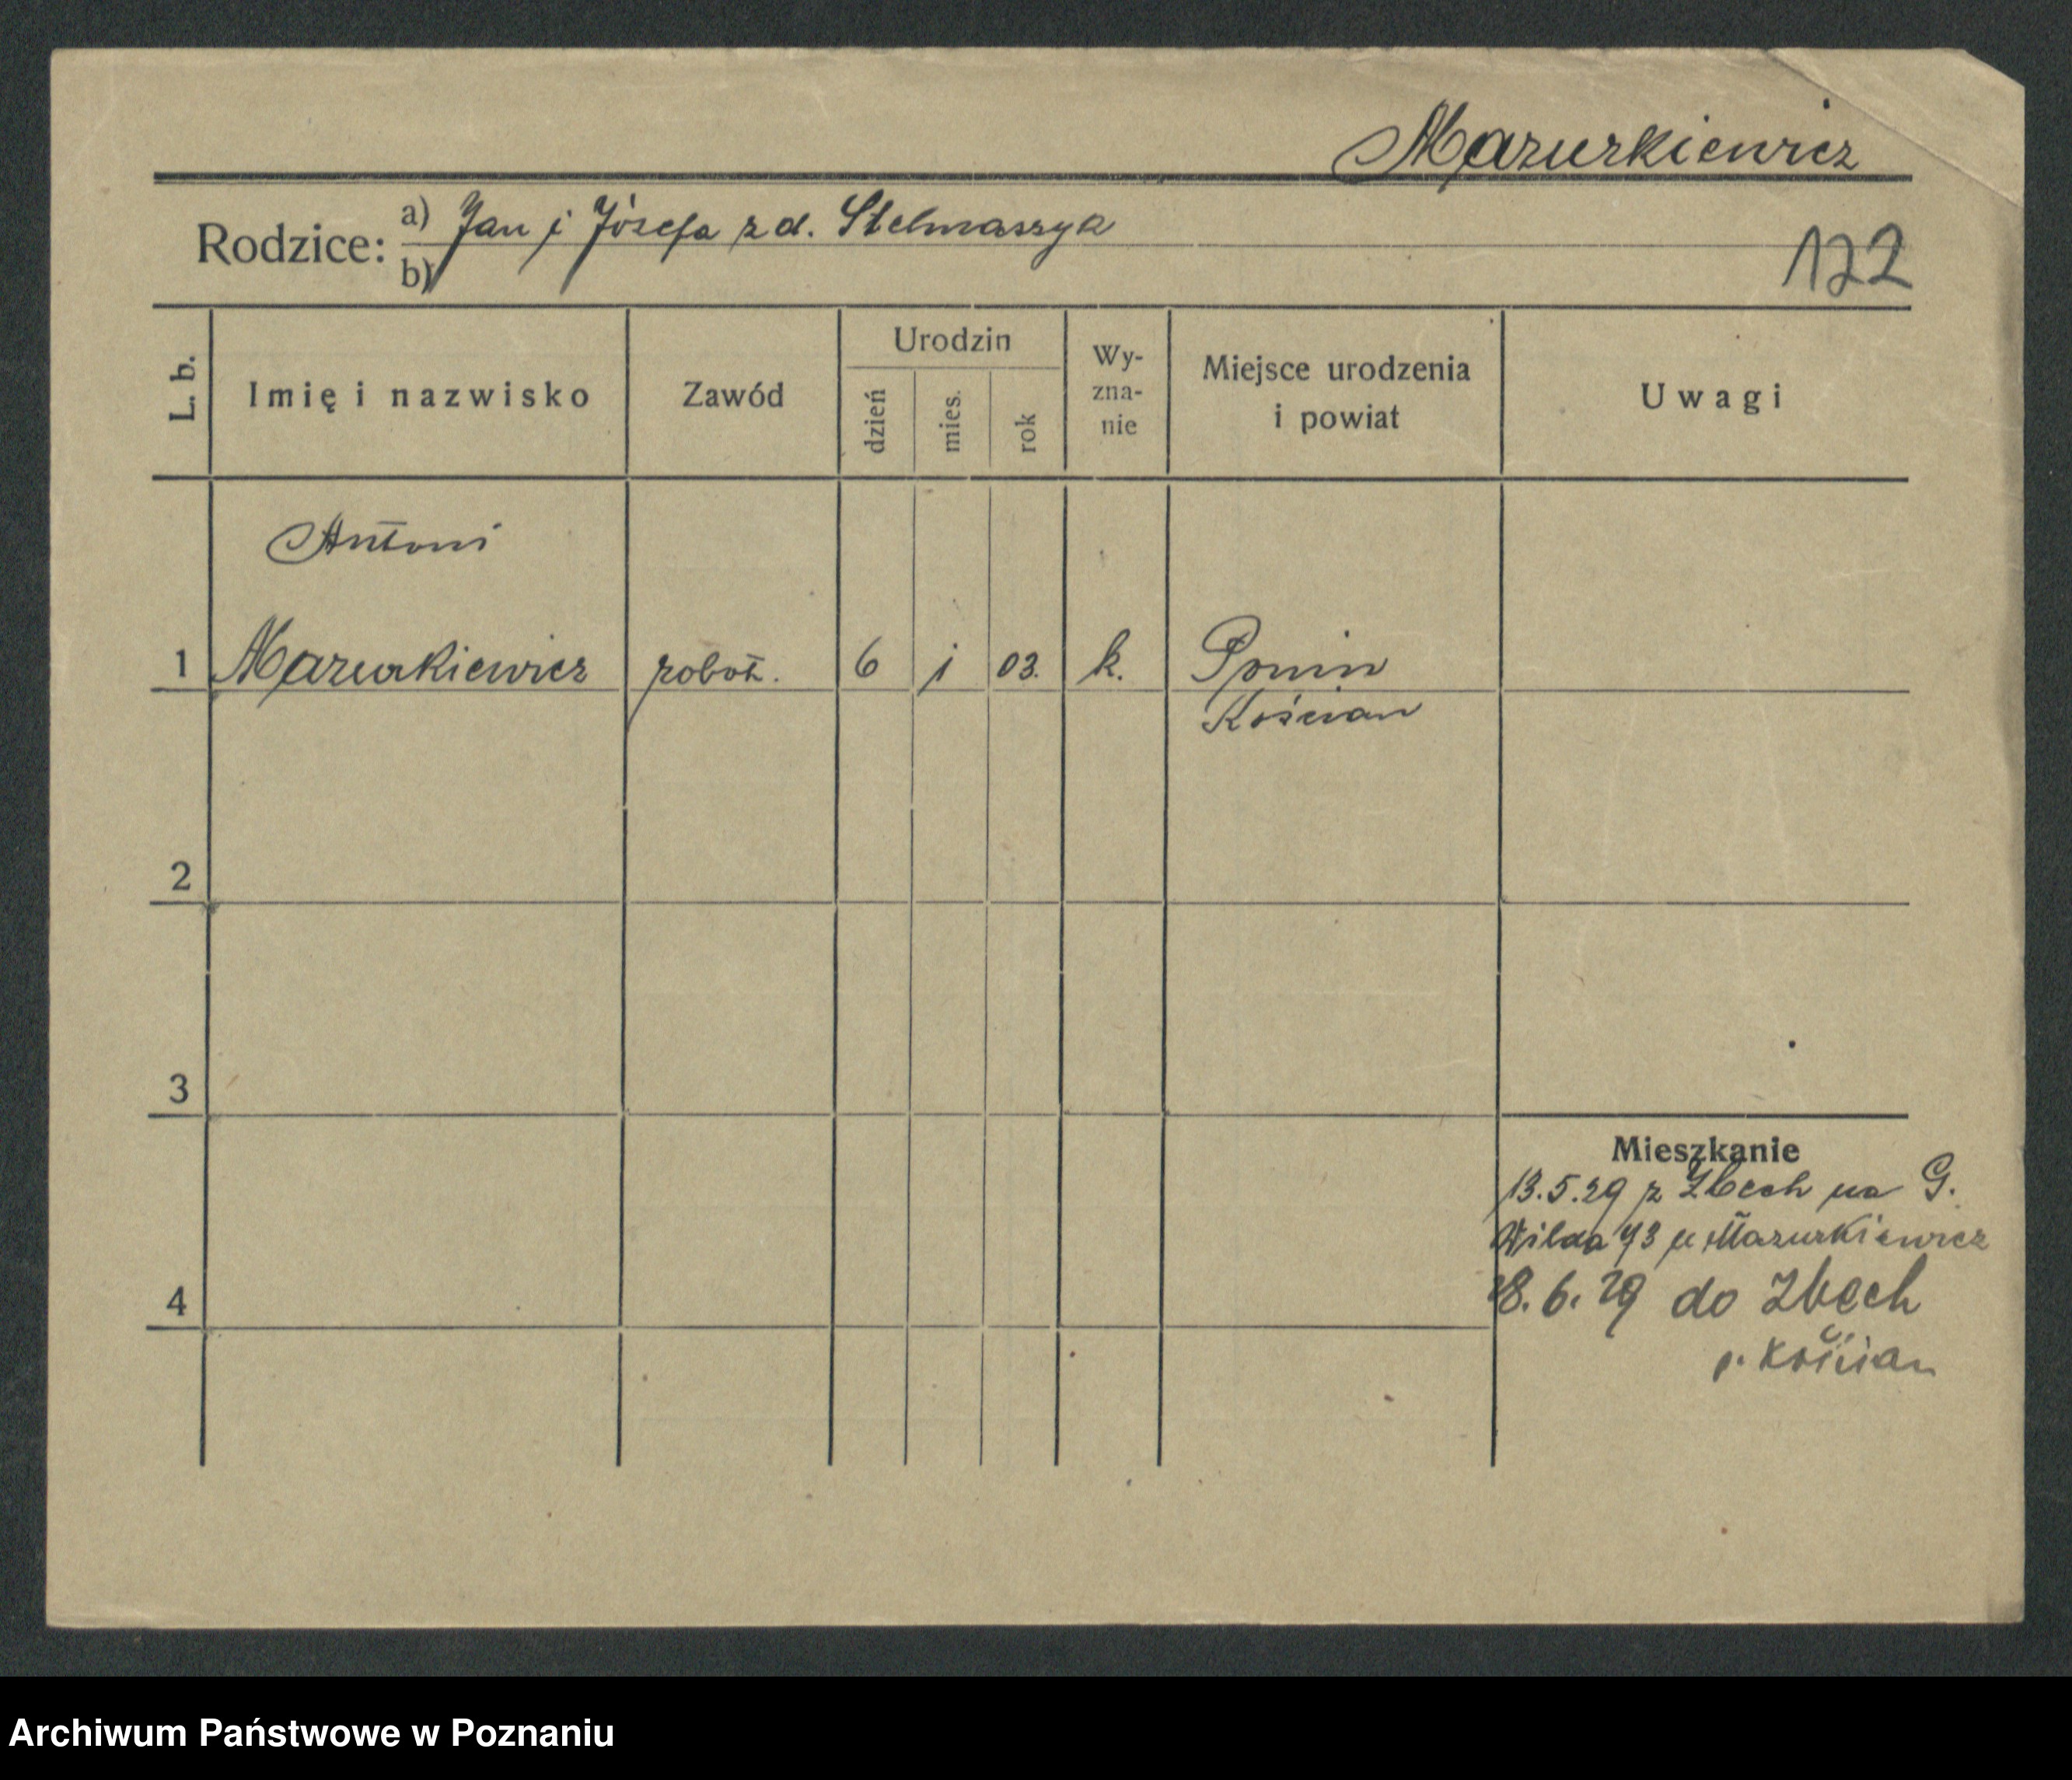 Mazurkiewicz
Rodzice: a) Jan i Józefa z d. Stelmaszyk
b)
122
L. b.
Imię i nazwisko
Zawód
Urodzin
dzień
mies.
rok
Wy-
zna-
nie
Miejsce urodzenia
i powiat
Uwagi
Antoni
1 Mazurkiewicz robotn. 6 1 03. k. Ponin
Kościan
2
3
Mieszkanie
13.5.29 z Zbech na G.
Wilda 73 u Mazurkiewicz
4
28.6.29 do Zbech
p. Kościan
Archiwum Państwowe w Poznaniu